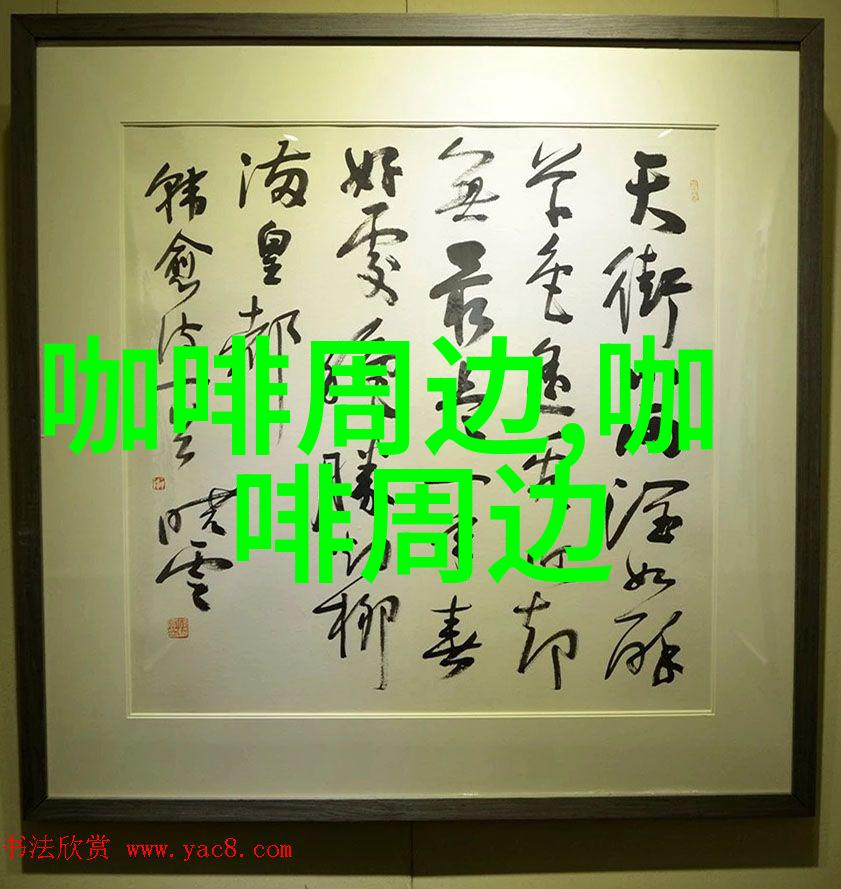 天街小雨潤如酥
草色遥看近却
無最是一年春
好處絶勝柳
满皇都
韩愈诗一首 晓雲
咖啡周边,咖
啡周边
书法欣赏 www.yac8.com